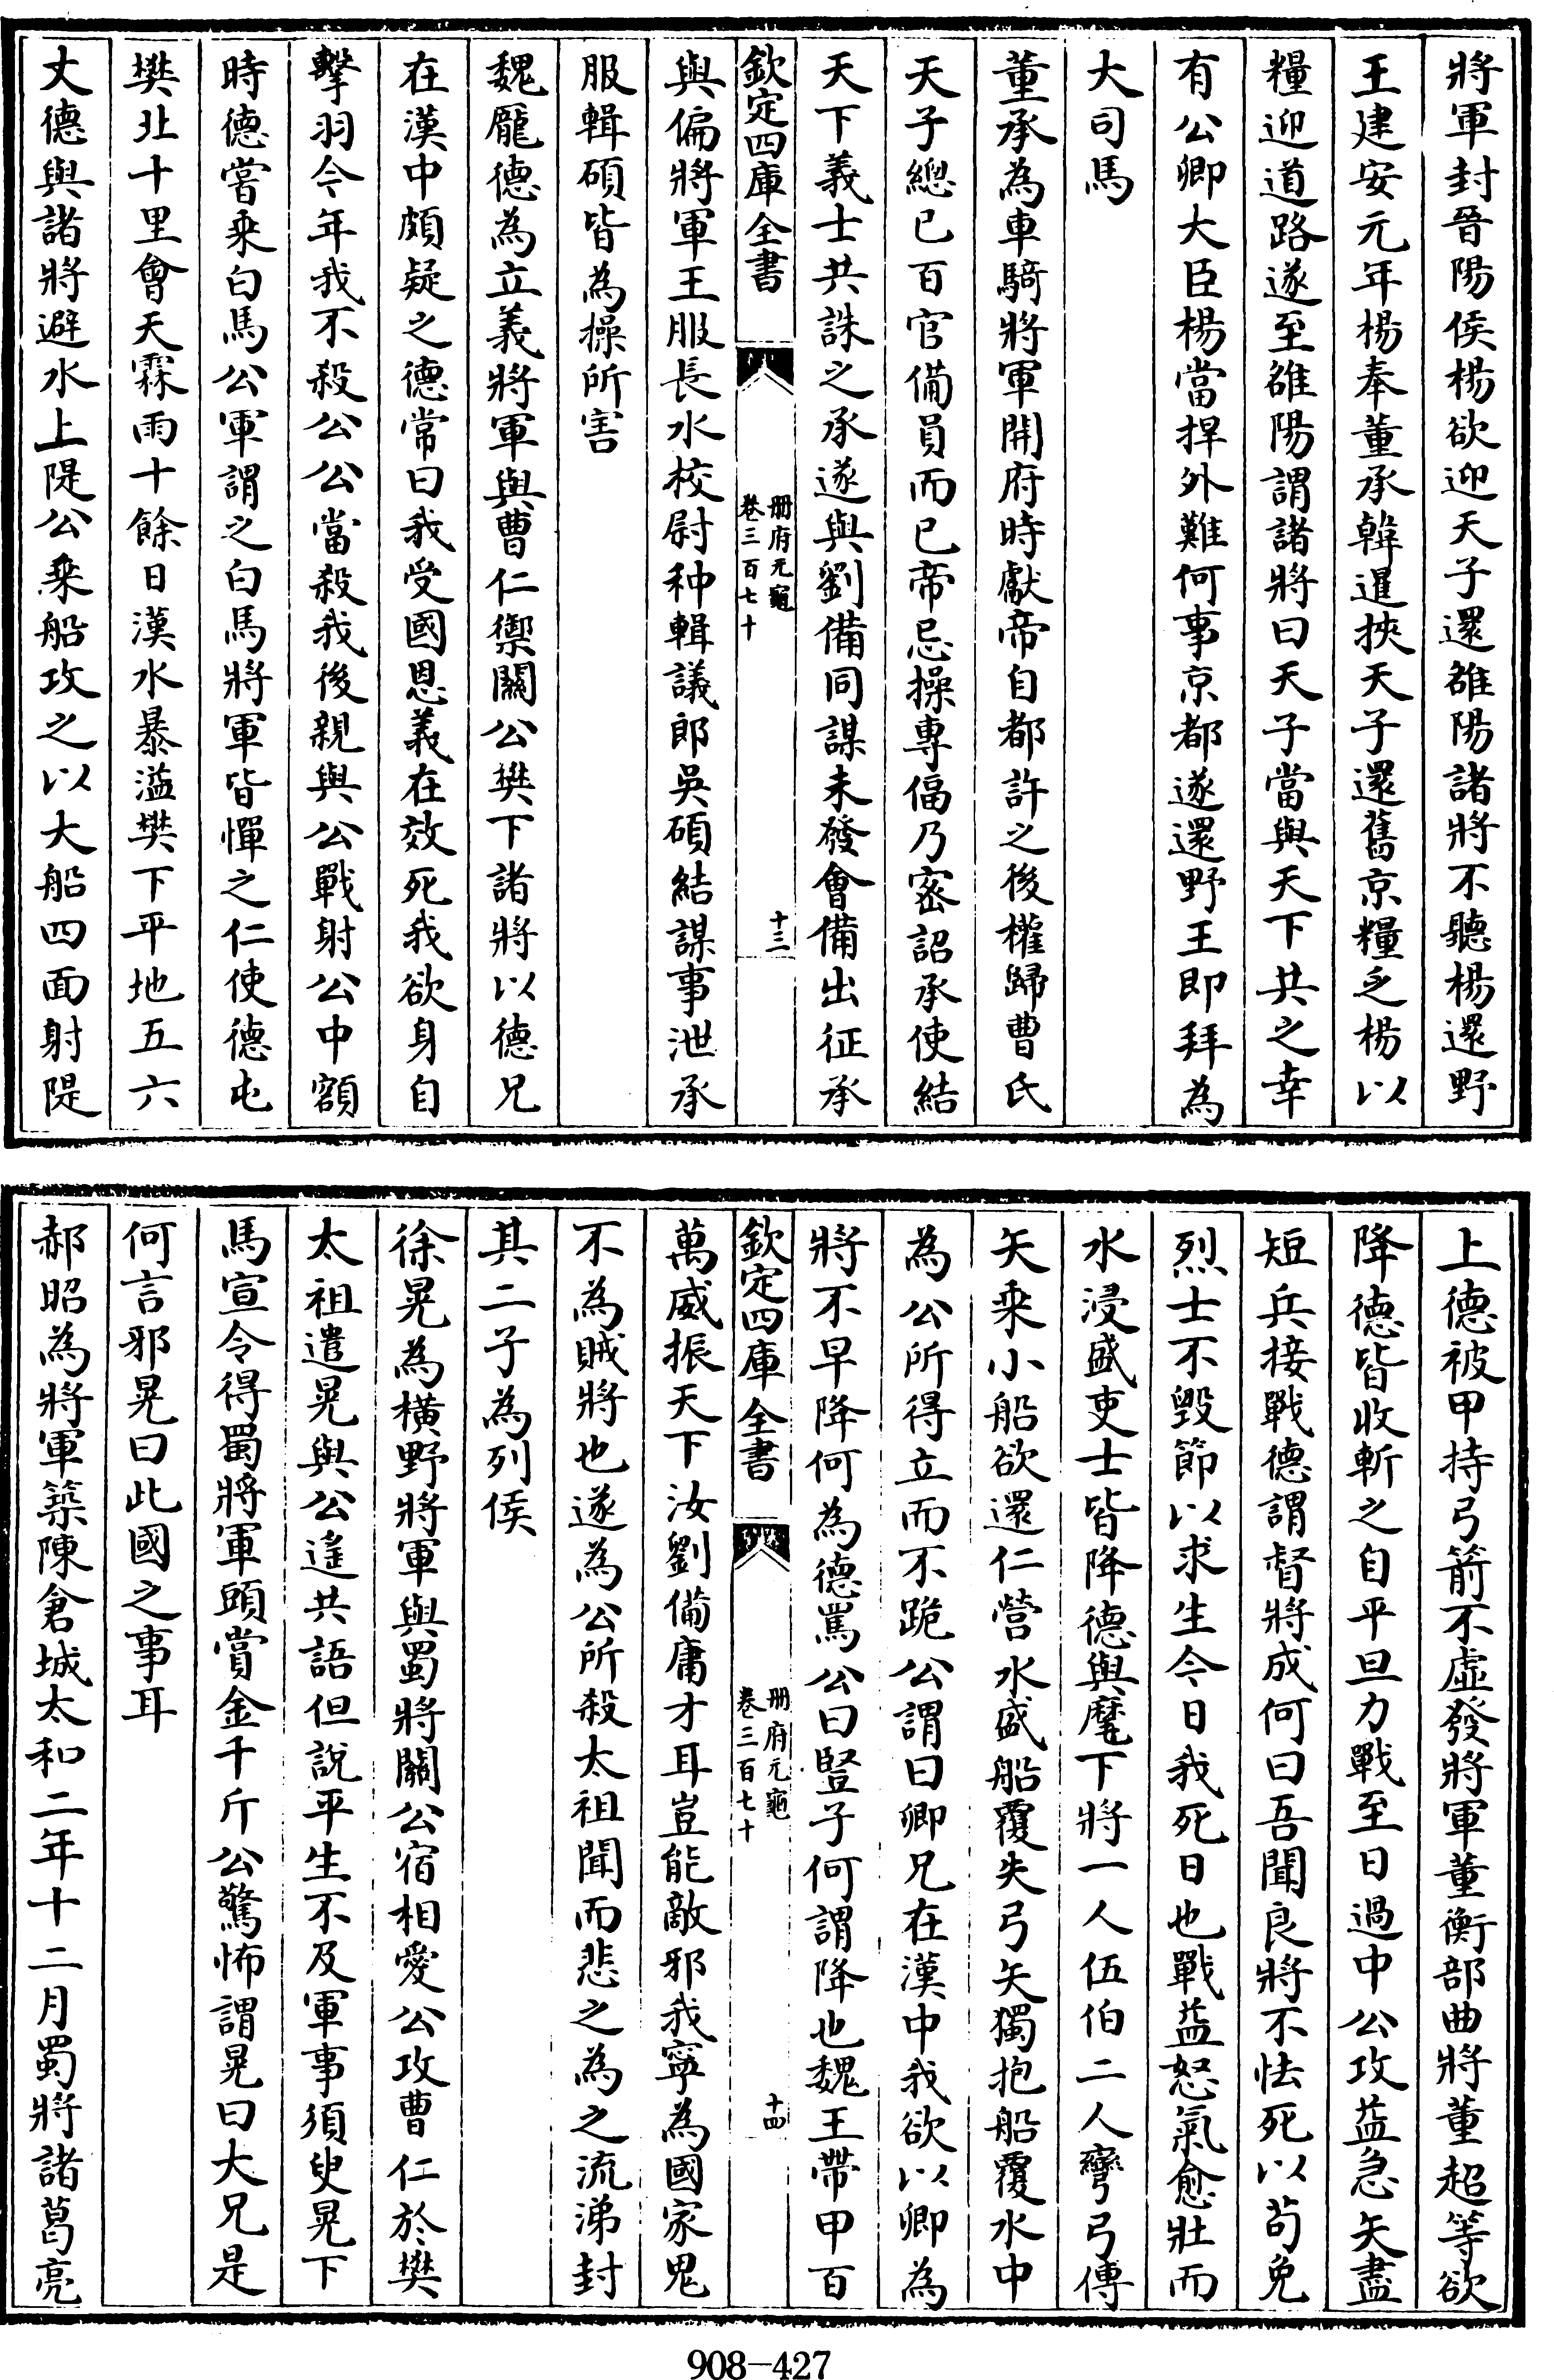 將軍封晉陽侯楊欲迎天子還雒陽諸將不聽楊還野
王建安元年楊奉董承韓暹挾天子還舊京糧乏楊以
糧迎道路遂至雒陽謂諸將曰天子當與天下共之幸
有公卿大臣楊當捍外難何事京都遂還野王即拜為
大司馬
董承為車騎將軍開府時獻帝自都許之後權歸曹氏
天子總已百官備員而已帝忌操專偪乃密詔承使結
天下義士共誅之承遂與劉備同謀未發會備出征承
欽定四庫全書
冊府元龜
卷三百七十
十三
與偏將軍王服長水校尉种輯議郎吳碩結謀事泄承
服輯碩皆為操所害
魏龐德為立義將軍與曹仁禦關公樊下諸將以德兄
在漢中頗疑之德常曰我受國恩義在效死我欲身自
擊羽今年我不殺公公當殺我後親與公戰射公中額
時德嘗乘白馬公軍謂之白馬將軍皆憚之仁使德屯
樊北十里會天霖雨十餘日漢水暴溢樊下平地五六
丈德與諸將避水上隄公乘船攻之以大船四面射隄
上德被甲持弓箭不虛發將軍董衡部曲將董超等欲
降德皆收斬之自平旦力戰至日過中公攻益急矢盡
短兵接戰德謂督將成何曰吾聞良將不怯死以茍免
烈士不毀節以求生今日我死日也戰益怒氣愈壯而
水浸盛吏士皆降德與麾下將一人伍伯二人彎弓傅
矢乘小船欲還仁營水盛船覆失弓矢獨抱船覆水中
為公所得立而不跪公謂曰卿兄在漢中我欲以卿為
將不早降何為德罵公曰豎子何謂降也魏王帶甲百
欽定四庫全書
冊府元龜
卷三百七十
十四
萬威振天下汝劉備庸才耳豈能敵邪我寧為國家鬼
不為賊將也遂為公所殺太祖聞而悲之為之流涕封
其二子為列侯
徐晃為橫野將軍與蜀將關公宿相愛公攻曹仁於樊
太祖遣晃與公遙共語但說平生不及軍事須臾晃下
馬宣令得蜀將軍頭賞金千斤公驚怖謂晃曰大兄是
何言邪晃曰此國之事耳
郝昭為將軍築陳倉城太和二年十二月蜀將諸葛亮
908-427